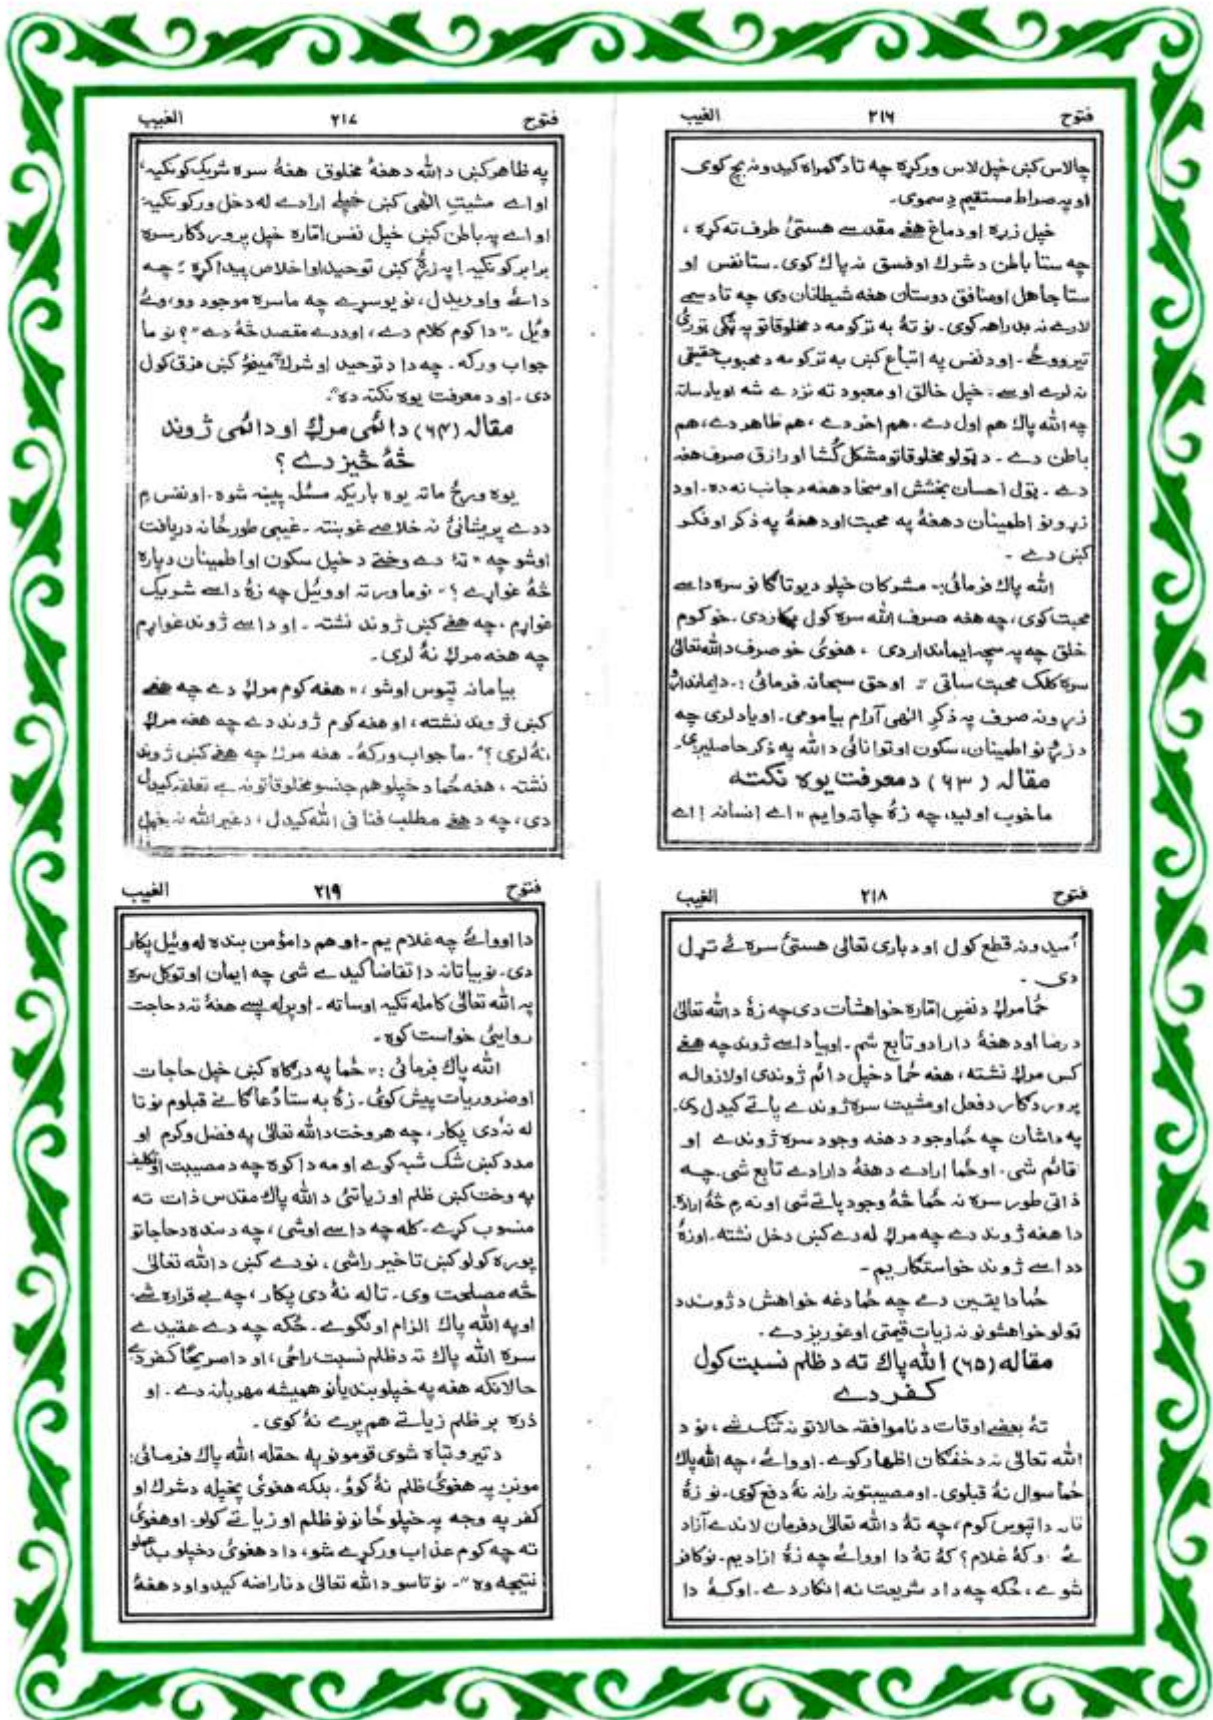 فتوح ۲۱۶ الغيب
چا لاس کښ خپل لاس ورکړه چه تا د ګمراه کیدو نه بچ کوی
او په صراط مستقیم دِ سموی۔
خپل زړه او دماغ هغے مقدسے هستئ طرف ته کړه ،
چه ستا باطن د شرک او فسق نه پاک کوی۔ ستا نفس او
ستا جاهل او منافق دوستان هغه شیطانان دی چه تا د سمے
لارے نه بد راهه کوی۔ نو تهٔ به ترکومه د مخلوقاتو په
تیر ووځے۔ او د نفس په اتباع کښ به ترکومه د محبوب حقیقی
نه لرے اوسے، خپل خالق او معبود ته نزدے شه او یاد ساته
چه الله پاک هم اول دے، هم اخر دے ، هم ظاهر دے، هم
باطن دے ۔ د ټولو مخلوقاتو مشکل کُشا او رازق صرف هغه
دے ۔ ټول احسان بخشش او سخا د هغه د جانب نه ده۔ او د
زړونو اطمینان د هغهٔ په محبت او د هغهٔ په ذکر او فکر
کښ دے ۔
الله پاک فرمائی:۔ مشرکان خپلو دیوتاګانو سره داسے
محبت کوی، چه هغه صرف الله سره کول پکار دی۔ خو کوم
خلق چه په سچه ایماندار دی ، هغوئ خو صرف د الله تعالیٰ
سره کلک محبت ساتی :۔ او حق سبحانه فرمائی :۔ د ایماندارو
زړونه صرف په ذکرِ الٰهی آرام بیا مومی۔ او یاد لری چه
د زړونو اطمینان، سکون او توانائی د الله په ذکر حاصلیږی۔
مقاله (۶۳) د معرفت یوه نکته
ما خوب اولید، چه زهٔ چا ته وایم " اے انسانه ! اے
فتوح ۲۱۷ الغيب
په ظاهر کښ د الله د هغهٔ مخلوق هغهٔ سره شریک کوونکیه،
او اے مشیتِ الٰهی کښ خپلے ارادے له دخل ورکوونکیه!
او اے په باطن کښ خپل نفس امّاره خپل پروردګار سره
برابر کوونکیه ! په زړهٔ کښ توحید او اخلاص پیدا کړه ؛ چه
دا ئے واوریدل، نو یو سړے چه ما سره موجود وو، وئے
وئیل ۔" دا کوم کلام دے ، او د دے مقصد څهٔ دے "؟ نو ما
جواب ورکه ۔ چه دا د توحید او شرک مینځ کښ فرق کول
دی ۔ او د معرفت یوه نکته ده"۔
مقاله (۶۴) دائمی مرګ او دائمی ژوند
څهٔ څیز دے ؟
یوه ورځ ما ته یوه باریکه مسئله پیښه شوه۔ او نفس مِ
د دے پریشانئ نه خلاصے غوښته ۔ غیبی طور ځانه دریافت
اوشو چه " تهٔ دے وختے د خپل سکون او اطمینان دپاره
څهٔ غواړے ؟"۔ نو ما ورته اووئیل چه زهٔ داسے شریک
غواړم ، چه هغے کښ ژوند نشته ۔ او داسے ژوند غواړم
چه هغه مرګ نهٔ لری۔
بیا ما نه تپوس اوشو ،" هغه کوم مرګ دے چه هغے
کښ ژوند نشته ، او هغه کوم ژوند دے چه هغه مرګ
نهٔ لری ؟"۔ ما جواب ورکهٔ۔ هغه مرګ چه هغے کښ ژوند
نشته ، هغه ځما د خپلو هم جنسو مخلوقاتو نه بے تعلقه کیدل
دی ، چه د هغے مطلب فنا فی الله کیدل، د غیر الله نه خپل
فتوح ۲۱۸ الغيب
اُمیدونه قطع کول او د باری تعالیٰ هستئ سره ئے تړل
دی ۔
ځما مرګ د نفسِ امّاره خواهشات دی چه زهٔ د الله تعالیٰ
د رضا او د هغهٔ د ارادو تابع شم ۔ او بیا داسے ژوند چه هغے
کښ مرګ نشته ، هغه ځما د خپل دائم ژوندی او لازواله
پروردګار د فعل او مشیت سره ژوندے پاتے کیدل دی،
په داشان چه ځما وجود د هغه وجود سره ژوندے او
قائم شی ۔ او ځما ارادے د هغهٔ د ارادے تابع شی. چه
ذاتی طور سره نه ځما څهٔ وجود پاتے شی او نه مِ څهٔ اراده۔
دا هغه ژوند دے چه مرګ له دے کښ دخل نشته۔ او زهٔ
د داسے ژوند خواستګار یم ۔
ځما دا یقین دے چه ځما دغه خواهش د ژوند د
ټولو خواهشونو نه زیات قیمتی او غوریز دے ۔
مقاله (۶۵) الله پاک ته د ظلم نسبت کول
کفر دے
تهٔ بعضے اوقات د ناموافقه حالاتو نه تنګ شے ، نو د
الله تعالیٰ نه د خفګان اظهار کوے ۔ او وائے ، چه الله پاک
ځما سوال نهٔ قبلوی ۔ او مصیبتونه رانه نهٔ دفع کوی۔ نو زهٔ
تا نه دا تپوس کوم، چه تهٔ د الله تعالیٰ د فرمان لاندے آزاد
ئے وکهٔ غلام ؟ کهٔ تهٔ دا اووائے چه زهٔ ازاد یم ۔ نو کافر
شوے ، ځکه چه دا د شریعت نه انکار دے ۔ او کهٔ دا
فتوح ۲۱۹ الغيب
دا اووائے چه غلام یم ۔ او هم دا مؤمن بنده له وئیل پکار
دی ۔ نو بیا تا نه دا تقاضا کیدے شی چه ایمان او توکل سره
په الله تعالیٰ کامله تکیه اوساته ۔ او پرله پسے هغهٔ نه د حاجت
روایئ خواست کوه ۔
الله پاک فرمائی :" ځما په درګاه کښ خپل حاجات
او ضروریات پیش کوئ۔ زهٔ به ستا دُعاګانے قبلوم نو تا
له نهٔ دی پکار ، چه هر وخت د الله تعالیٰ په فضل وکرم او
مدد کښ شک شبه کوے او مه دا کوه چه د مصیبت او تکلیف
په وخت کښ ظلم او زیاتئ د الله پاک مقدس ذات ته
منسوب کړے ۔ کله چه داسے اوشی ، چه د بنده د حاجاتو
پوره کولو کښ تاخیر راشی ، نو دے کښ د الله تعالیٰ
څه مصلحت وی ۔ تا له نهٔ دی پکار ، چه بے قراره شے۔
او په الله پاک الزام اولګوے ۔ ځکه چه دے عقیدے
سره الله پاک ته د ظلم نسبت راځی ، او دا صریحًا کفر دے
حالانکه هغه په خپلو بندیانو همیشه مهربانه دے ۔ او
ذره بر ظلم زیاتے هم پرے نهٔ کوی ۔
د تیرو تباه شوی قومونو په حقله الله پاک فرمائی:
مونږ په هغوئ ظلم نهٔ کوؤ ۔ بلکه هغوئ پخپله د شرک او
کفر په وجه په خپلو ځانونو ظلم او زیاتے کولو ۔ او هغوئ
ته چه کوم عذاب ورکړے شو ، دا د هغوئ د خپلو بدعملو
نتیجه وه "۔ نو تاسو د الله تعالیٰ د ناراضه کیدو او د هغهٔ